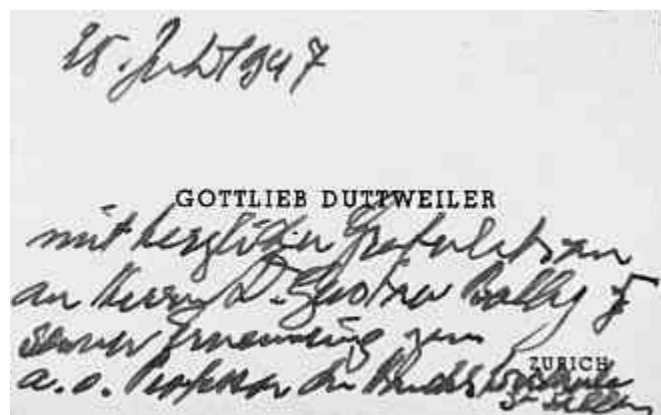 25. Juli 1947
GOTTLIEB DUTTWEILER
mit herzlicher Gratulation
an Herrn D. Gustav Bally z
seiner Ernennung zum
ZURICH
a. o. Professor der